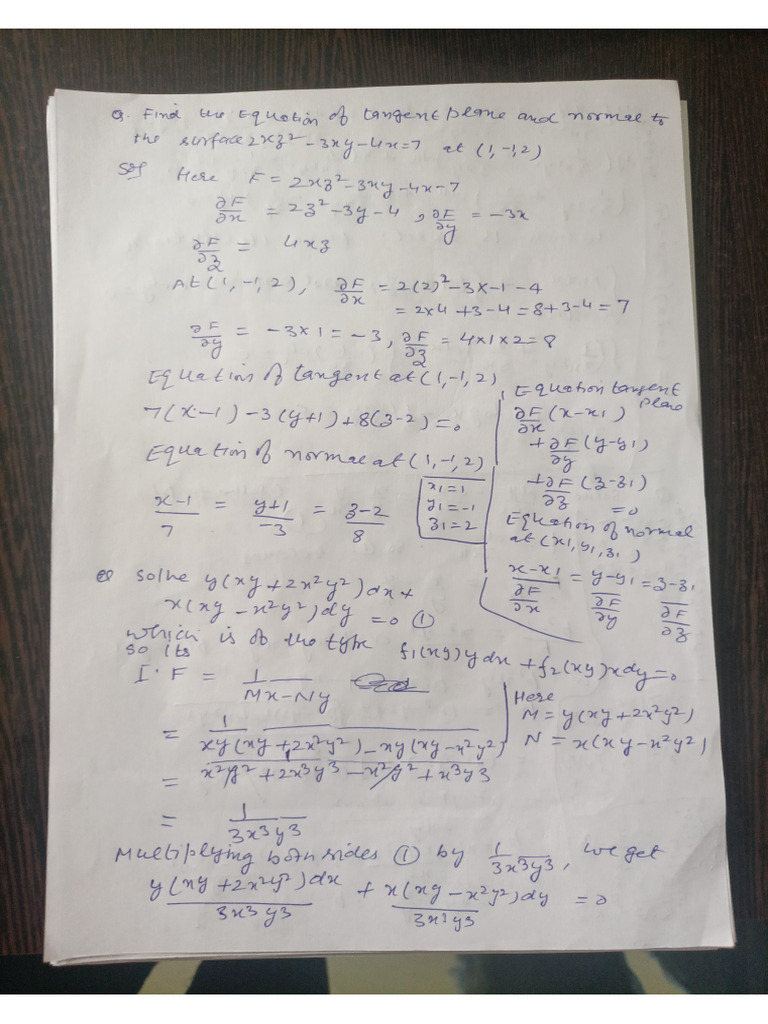 Q. Find the Equation of tangent plane and normal to
the surface 2xz² - 3xy - 4x = 7 at (1, -1, 2)
Sol Here F = 2xz² - 3xy - 4x - 7
∂F/∂x = 2z² - 3y - 4, ∂F/∂y = -3x
∂F/∂z = 4xz
At (1, -1, 2), ∂F/∂x = 2(2)² - 3x-1 - 4
= 2x4 + 3 - 4 = 8 + 3 - 4 = 7
∂F/∂y = -3x1 = -3, ∂F/∂z = 4x1x2 = 8
Equation of tangent at (1, -1, 2)
7(x-1) - 3(y+1) + 8(z-2) = 0
Equation of normal at (1, -1, 2)
x-1/7 = y+1/-3 = z-2/8
x1 = 1
y1 = -1
z1 = 2
Equation tangent
plane
∂F/∂x (x-x1)
+ ∂F/∂y (y-y1)
+ ∂F/∂z (z-z1)
= 0
Equation of normal
at (x1, y1, z1)
x-x1/∂F/∂x = y-y1/∂F/∂y = z-z1/∂F/∂z
Q Solve y(xy + 2x²y²)dx +
x(xy - x²y²)dy = 0 ①
which is of the type f1(xy)ydx + f2(xy)xdy = 0
so its
I.F = 1/Mx-Ny
Here
M = y(xy + 2x²y²)
N = x(xy - x²y²)
= 1/xy(xy + 2x²y²) - xy(xy - x²y²)
= 1/x²y² + 2x³y³ - x²y² + x³y³
= 1/3x³y³
Multiplying both sides ① by 1/3x³y³, we get
y(xy + 2x²y²)dx/3x³y³ + x(xy - x²y²)dy/3x³y³ = 0